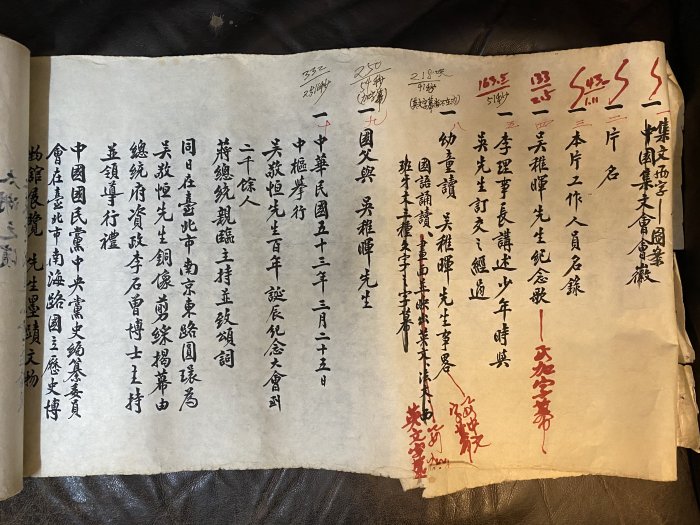 集文物字—圖案
一 中國集文會會徽
一 片名
一 本片工作人員名錄
43
1.11
一 吳稚暉先生紀念歌—只加字幕
133
2.15
一 李理事長講述少年時與
吳先生訂交之經過
163.5
51秒
一 幼童讀 吳稚暉先生事略
國語誦讀
班牙文三種文字之字幕
英文字幕
218呎
91秒
一 國父與 吳稚暉先生
250
54秒
一 中華民國五十三年三月二十五日
332
251秒
中樞舉行
吳敬恒先生百年誕辰紀念大會到
二千餘人
蔣總統親臨主持並致頌詞
同日在臺北市南京東路圓環為
吳敬恒先生銅像剪綵揭幕由
總統府資政李石曾博士主持
並領導行禮
中國國民黨中央黨史編纂委員
會在臺北市南海路國立歷史博
物館展覽 先生墨蹟文物